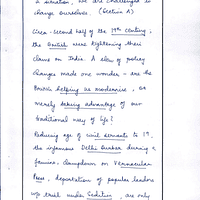 a situation, we are challenged to
change ourselves. (Section A)
Circa - second half of the 19th century;
the British were tightening their
claws on India. A slew of policy
changes made one wonder - are the
British helping us modernise, or
merely taking advantage of our
traditional way of life?
Reducing age of civil servants to 19,
the infamous Delhi Durbar during a
famine, clampdown on Vernacular
Press, deportation of popular leaders
u/s trial under Sedition, are only